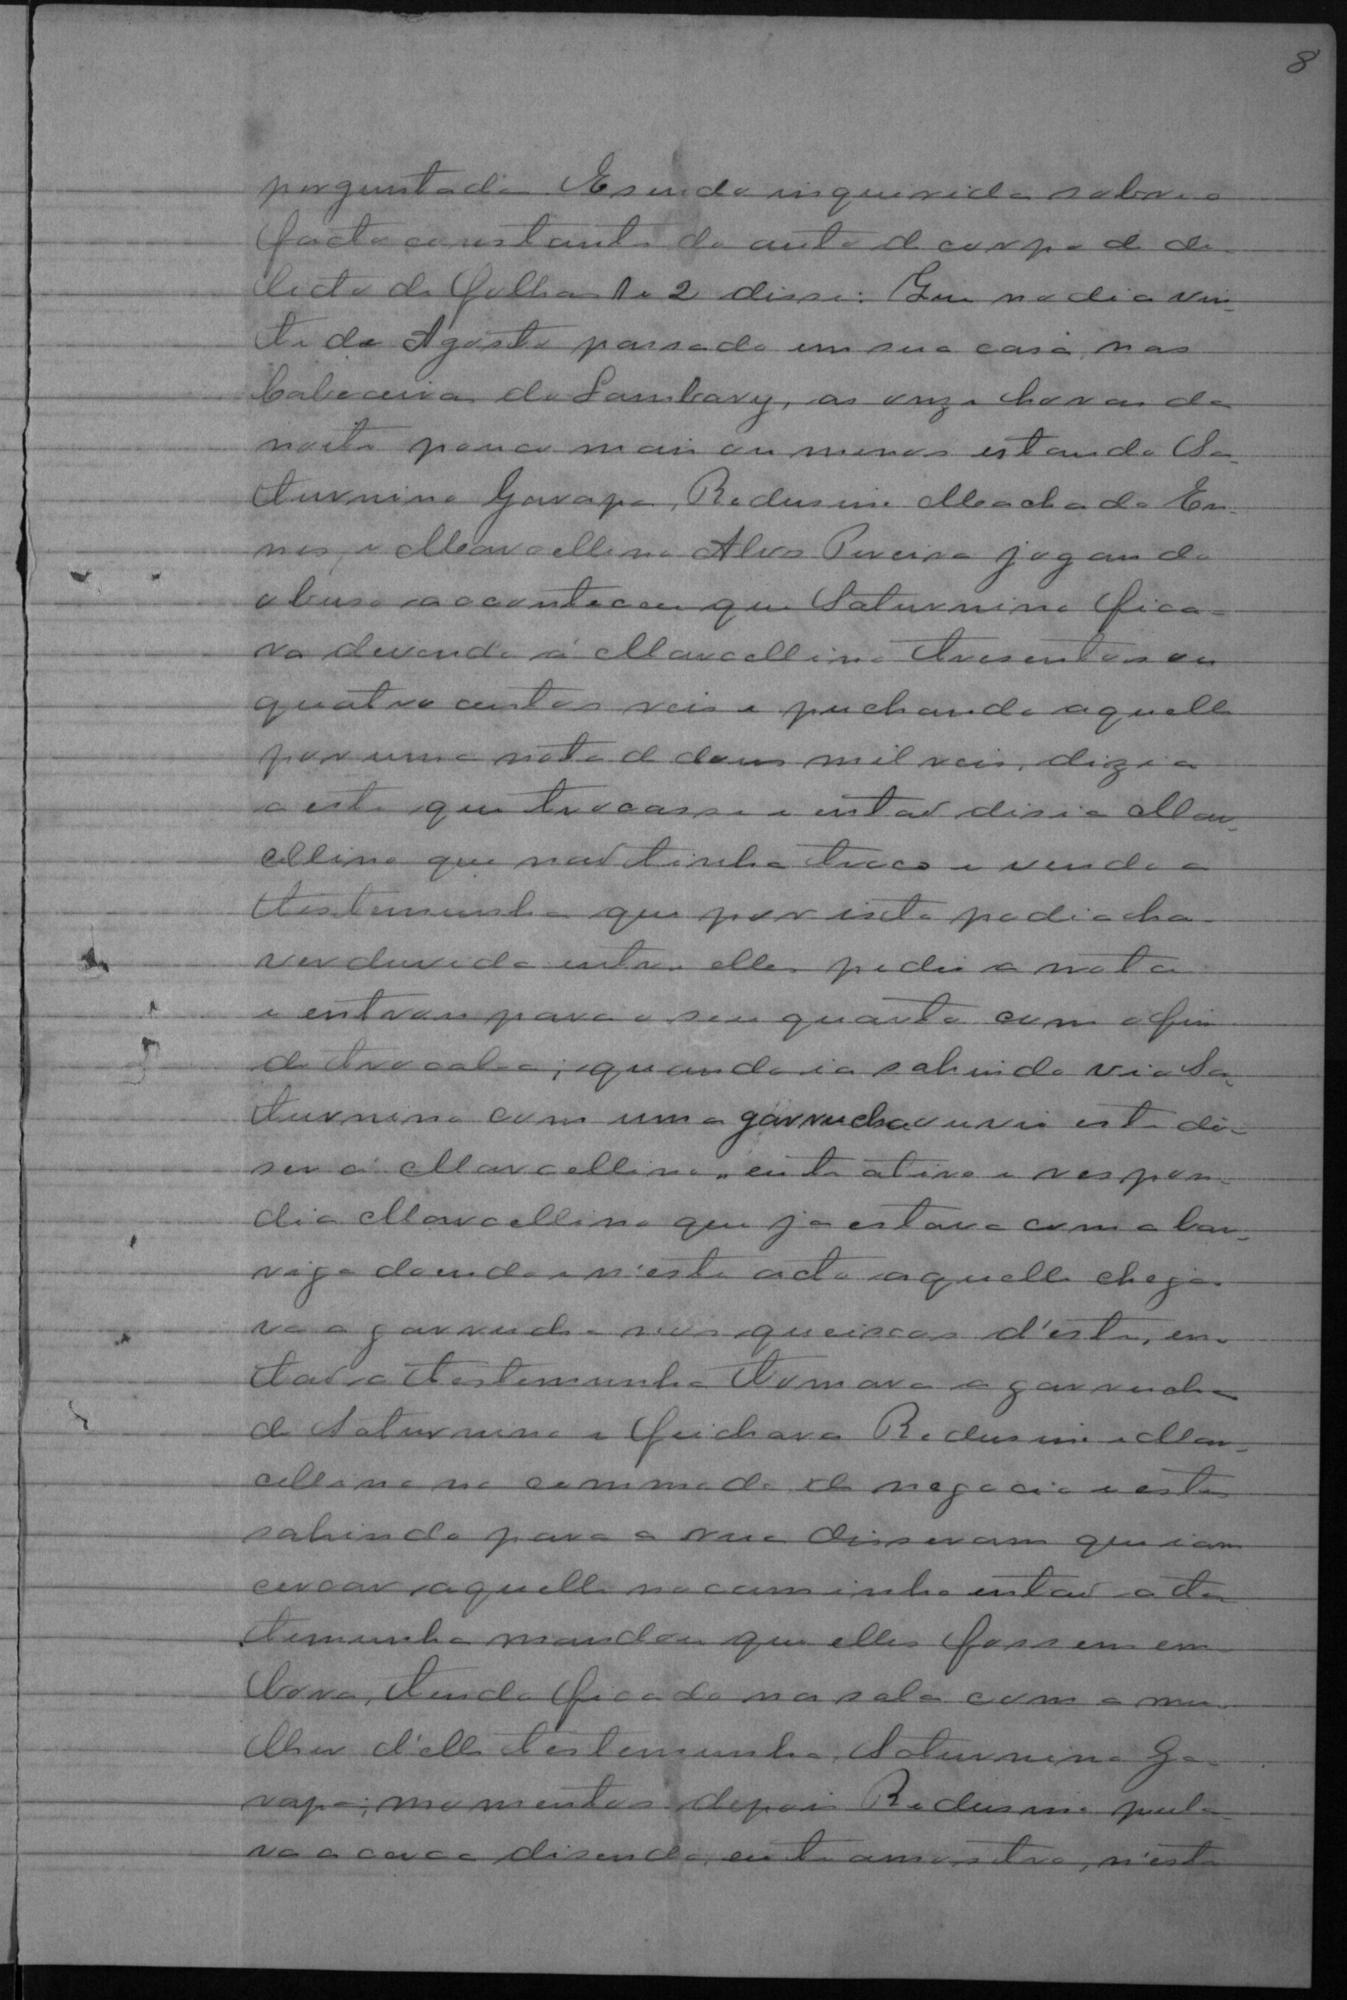 8
perguntada. E sendo inquerida sobre o
facto constante do auto de corpo de de-
licto de folhas 1 e 2 disse: Que no dia vin-
te de Agosto passado em sua casa nas
Cabeceiras do Lambary, as onze horas da
noite pouco mais ou menos estando Sa-
turnino Garapa, Redusino Machado En-
nes, e Marcellino Alves Pereira jogando
o buso aconteceu que Saturnino fica-
va devendo á Marcellino tresentos ou
quatro centos reis e puchando aquelle
por uma nota de dous mil reis, dizia
a este que trocasse e entaõ disia Mar-
cellino que naõ tinha troco e vendo a
testemunha que por isto podia ha-
ver duvida entre elles pediu a nota
e entrou para o seu quarto com o fim
de trocal-a; quando ia sahindo vio Sa-
turnino com uma garrucha ouviu este di-
ser á Marcellino „eu te atiro e respon-
dia Marcellino que ja estava com a bar-
riga doendo e n'este acto aquelle chega-
va a garrucha nos queiscos d'este, en-
taõ a testemunha tomara a garrucha
de Saturnino e feichara Redusino e Mar-
cellino no commodo de negocio e estes
sahindo para a rua disseram que iam
cercar aquelle no caminho entaõ a tes
temunha mandou que elles fossem em-
bora, tendo ficado na sala com a mu-
lher d'elle testemunha, Saturnino Ga-
rapa; momentos depois Redusino pula-
va a cerca disendo, eu te amostro, n'este